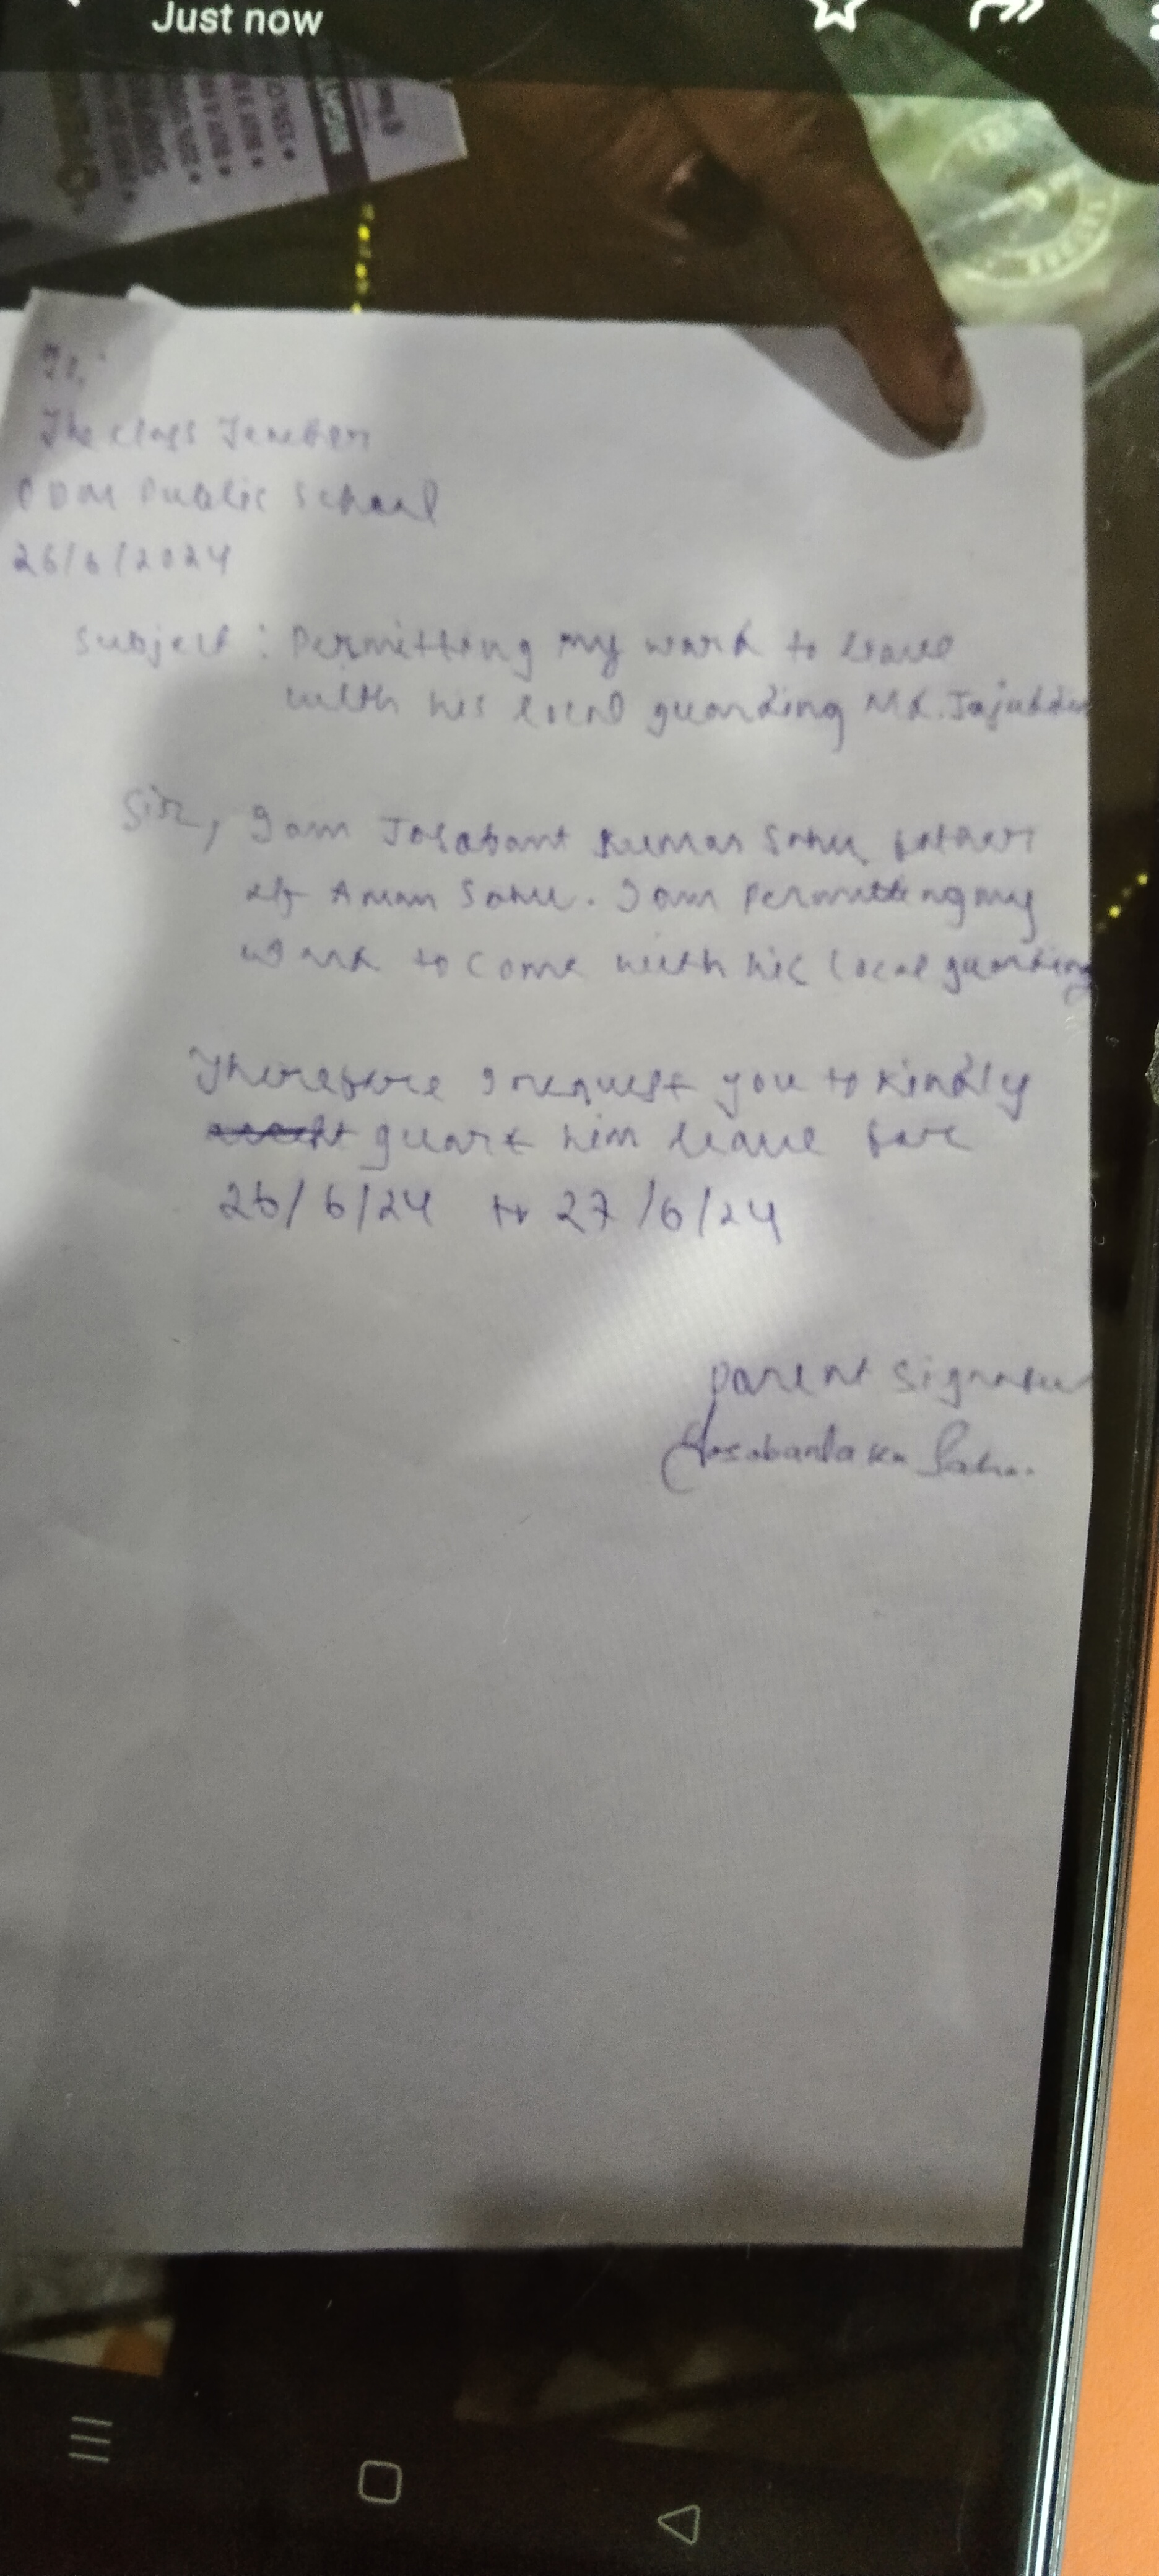 Just now
To,
The class Teacher
ODM Public School
26/6/2024
Subject : Permitting my ward to leave
with his local guarding Md. Tajuddin
Sir, I am Josabant Kumar Sahu father
of Aman Sahu. I am Permitting my
ward to come with his local guarding
Therefore I request you to kindly
guart him leave for
26/6/24 to 27/6/24
Parent Signatur
Josabanta Ku Sahu.